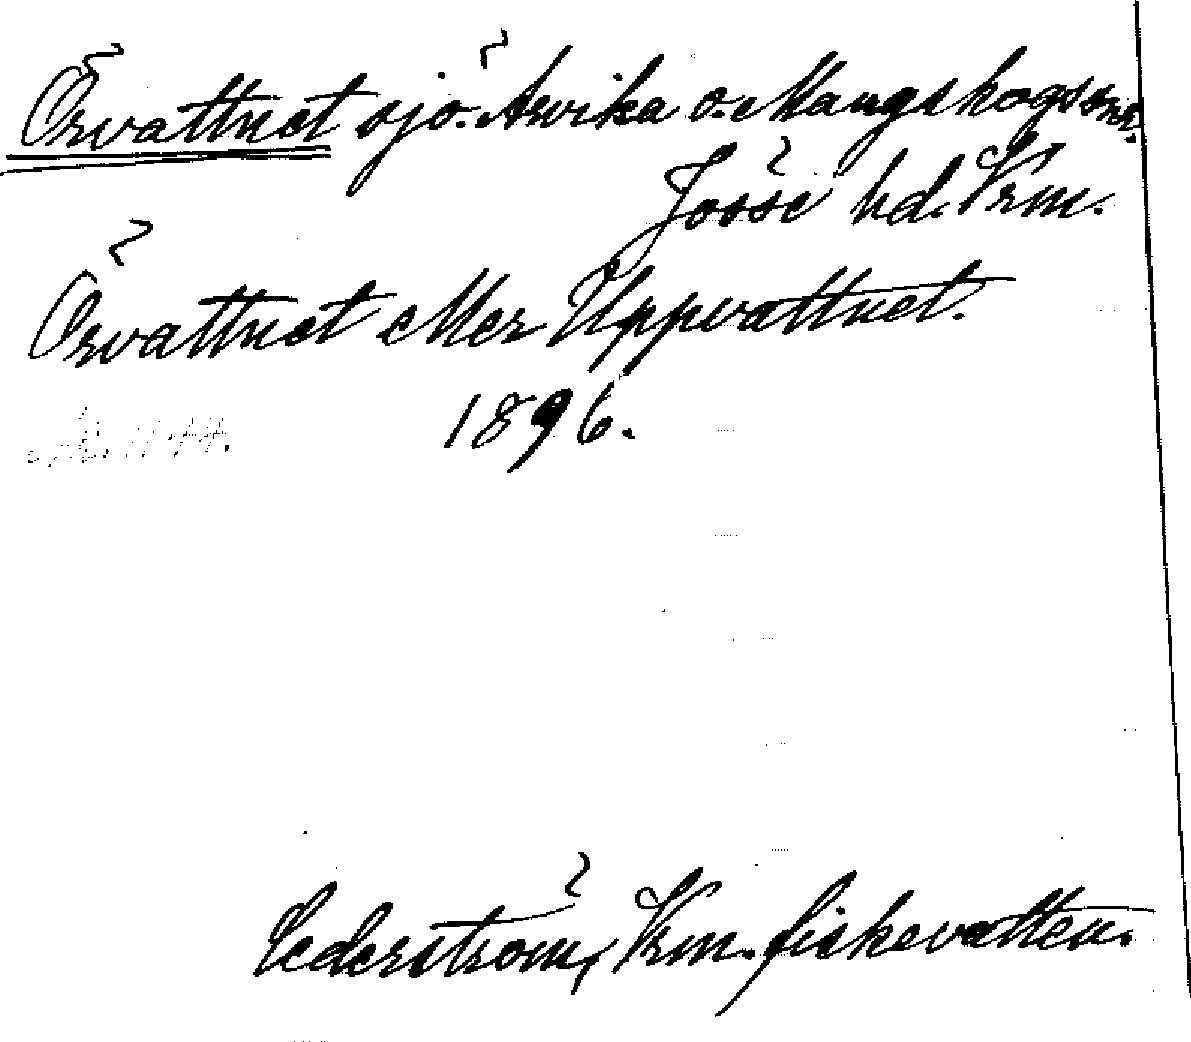 Örvattnet sjö. Arvika o. Mangskogs snr.
Jösse hd. Vrm.
Örvattnet eller Uppvattnet.
1896.
Cederström, Vrm. fiskevatten.